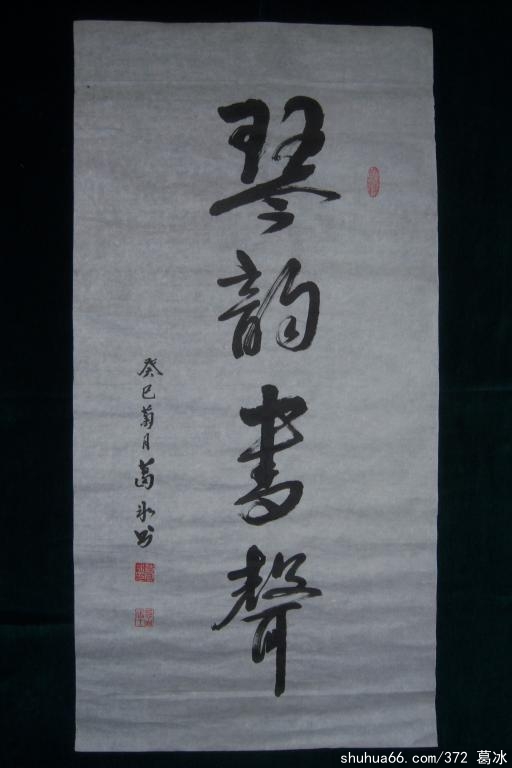 琴韵書聲
癸巳菊月葛冰书
shuhua66.com/372 葛冰